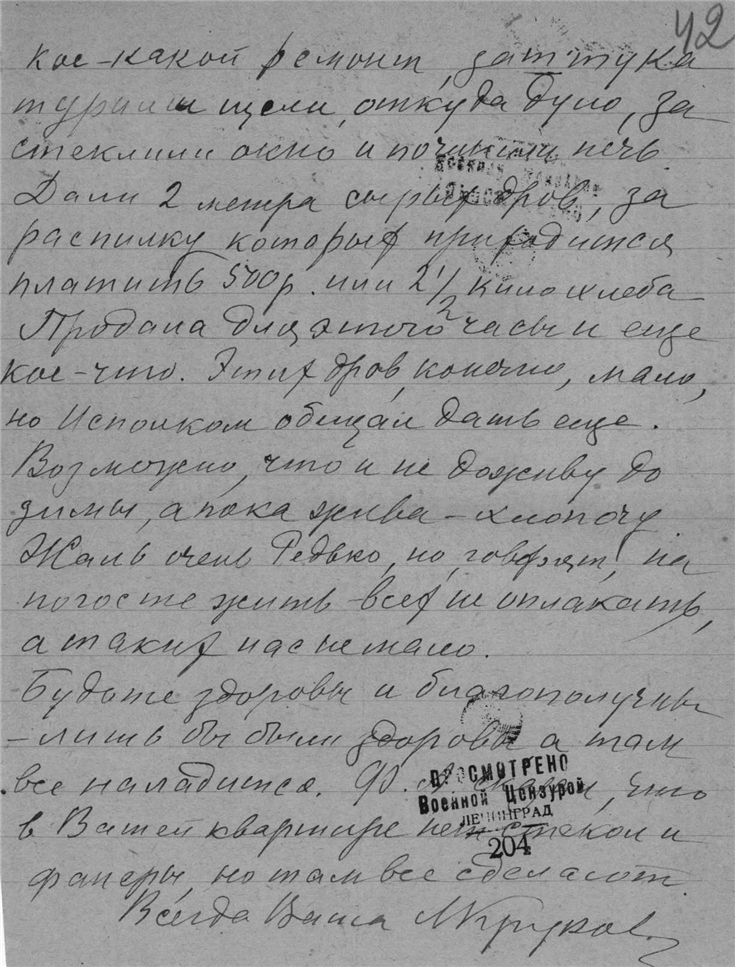 42
кое-какой ремонт, заштука
турили щели, откуда дуло, за
стеклили окно и починили печь.
Дали 2 метра сырых дров, за
распилку которых приходится
платить 500 р. или 2 1/2 кило хлеба
Продала для этого часы и еще
кое-что. Этих дров, конечно, мало,
но Исполком обещал дать еще.
Возможно, что и не доживу до
зимы, а пока жива – хлопочу
Жаль очень Редько, но, говорят, на
погосте жить – всех не оплакать,
а таких нас немало.
Будьте здоровы и благополучны
– лишь бы были здоровы а там
все наладится. Ф. что
в Вашей квартире нет стекол и
фанеры, но там все сделают.
Всегда Ваша
ПРОСМОТРЕНО
Военной Цензурой
ЛЕНИНГРАД
204